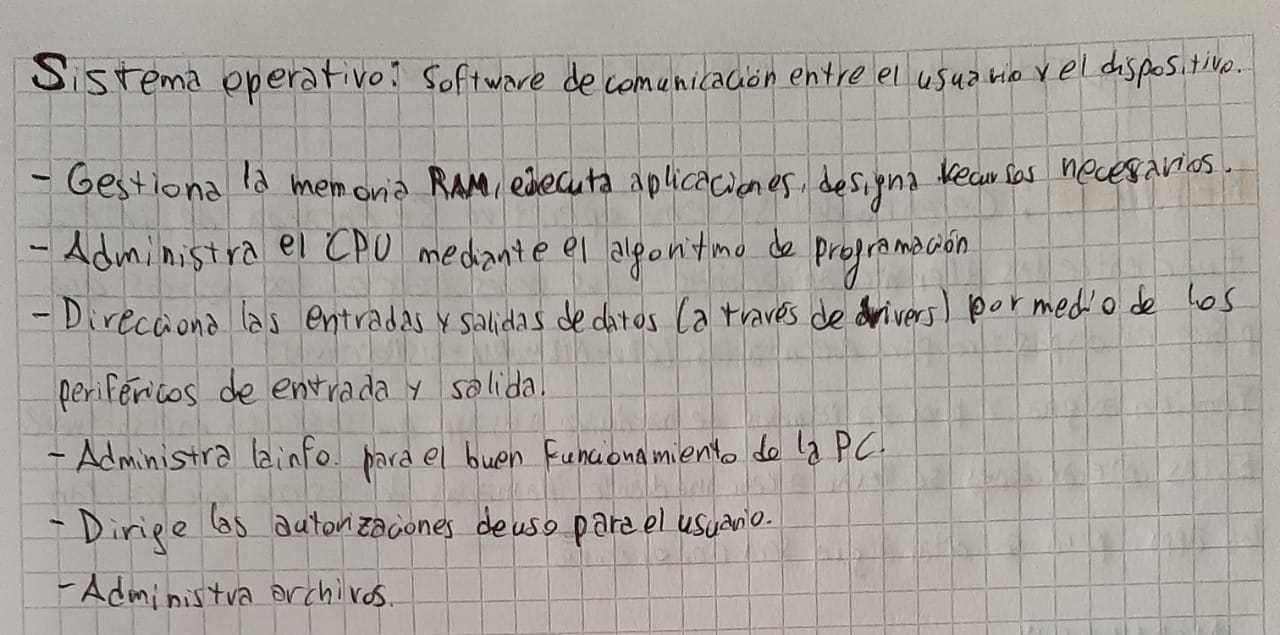 Sistema operativo: Software de comunicación entre el usuario y el dispositivo.
- Gestiona la memoria RAM, ejecuta aplicaciones, designa recursos necesarios.
- Administra el CPU mediante el algoritmo de programación
- Direcciona las entradas y salidas de datos (a través de drivers) por medio de los
periféricos de entrada y salida.
- Administra la info. para el buen funcionamiento de la PC.
- Dirige las autorizaciones de uso para el usuario.
- Administra archivos.